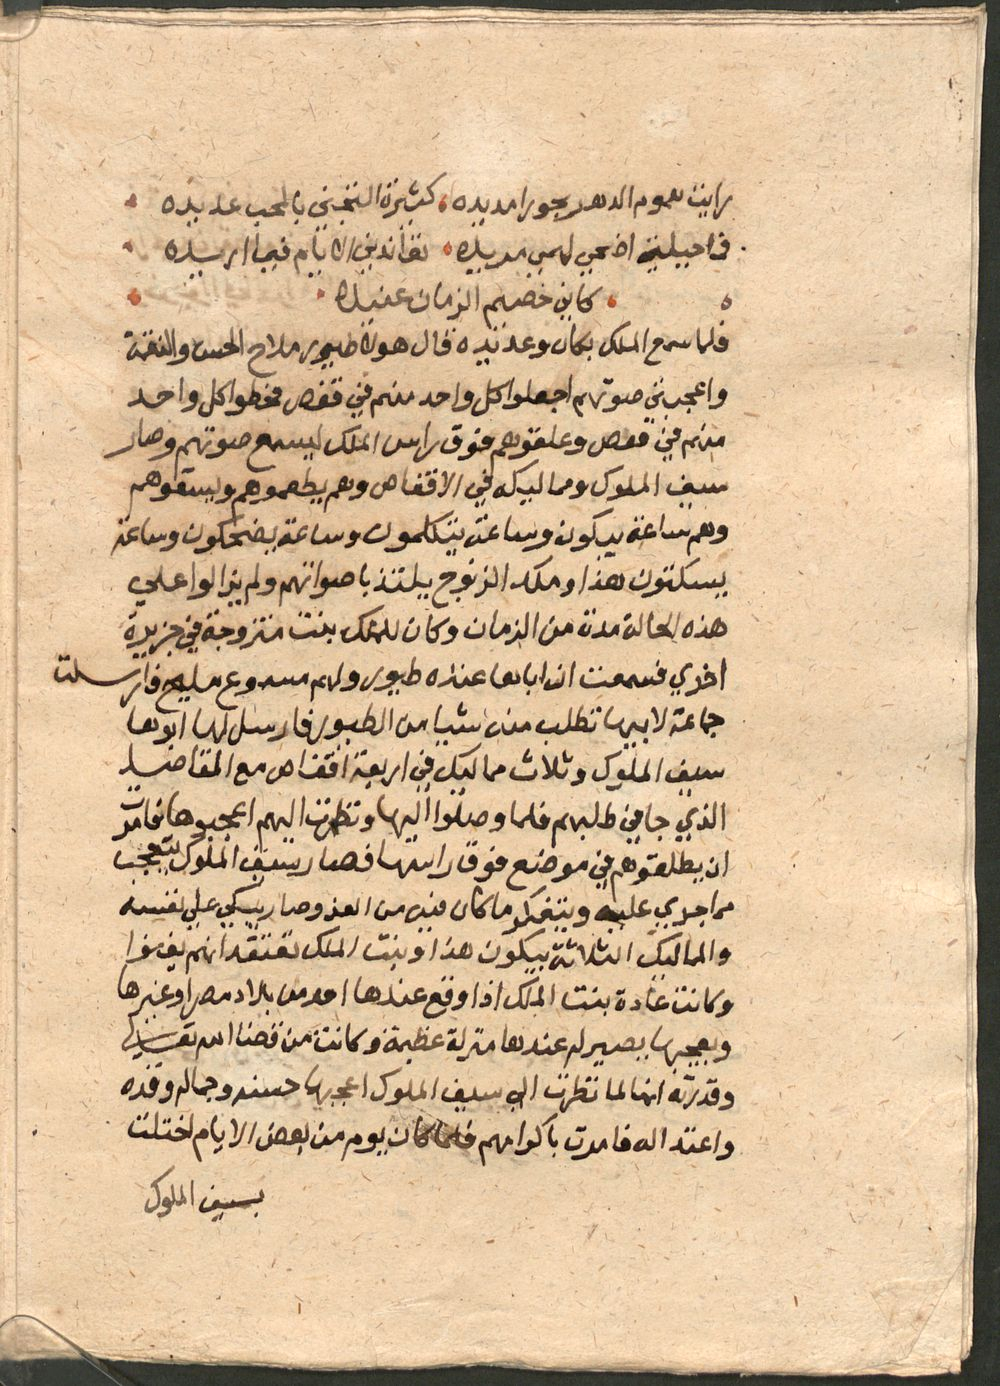 رايت هموم الدهر بحورا مديده كثيرة التجني بالمحب عديده
في احيلية اضحي لهمي مديده تقاندني الايام فيما اريده
كاني خصيم الزمان عنيده
فلما سمع الملك بكاه وعدنيده قال هولاء طيور ملاح الحس والنغمة
واعجبني صوتهم اجعلوا كل واحد منهم في قفص فحطوا كل واحد
منهم في قفص وعلقوهم فوق راس الملك ليسمع صوتهم وصار
سيف الملوك ومماليكه في الاقفاص وهم يطعموهم ويسقوهم
وهم ساعة يبكون وساعة يتكلمون وساعة يضحكون وساعة
يسكتون هذا وملك الزنوج يلتذ باصواتهم ولم يزالوا علي
هذه الحالة مدة من الزمان وكان للملك بنت متزوجة في جزيرة
اخري فسمعت ان اباها عنده طيور ولهم مسموع مليح فارسلت
جماعة لابيها تطلب منه شيا من الطيور فارسل لها ابوها
سيف الملوك وثلاث مماليك في اربعة اقفاص مع القاصد
الذي جا في طلبهم فلما وصلوا اليها ونظرت اليهم اعجبوها فامرت
ان يطلعوهم في موضع فوق راسها فصار سيف الملوك يتعجب
مما جري عليه ويتفكر ما كان فيه من العز وصار يبكي علي نفسه
والمماليك الثلاثة يبكون هذا وبنت الملك تعتقد انهم يغنوا
وكانت عادة بنت الملك اذا وقع عندها احد من بلاد مصر او غيرها
ويعجبها يصير له عندها منزلة عظيمة وكانت من قضا الله تعالي
وقدرته انها لما نظرت الي سيف الملوك اعجبها حسنه وجماله وقده
واعتداله فامرت باكرامهم فلما كان يوم من بعض الايام اختلت
بسيف الملوك